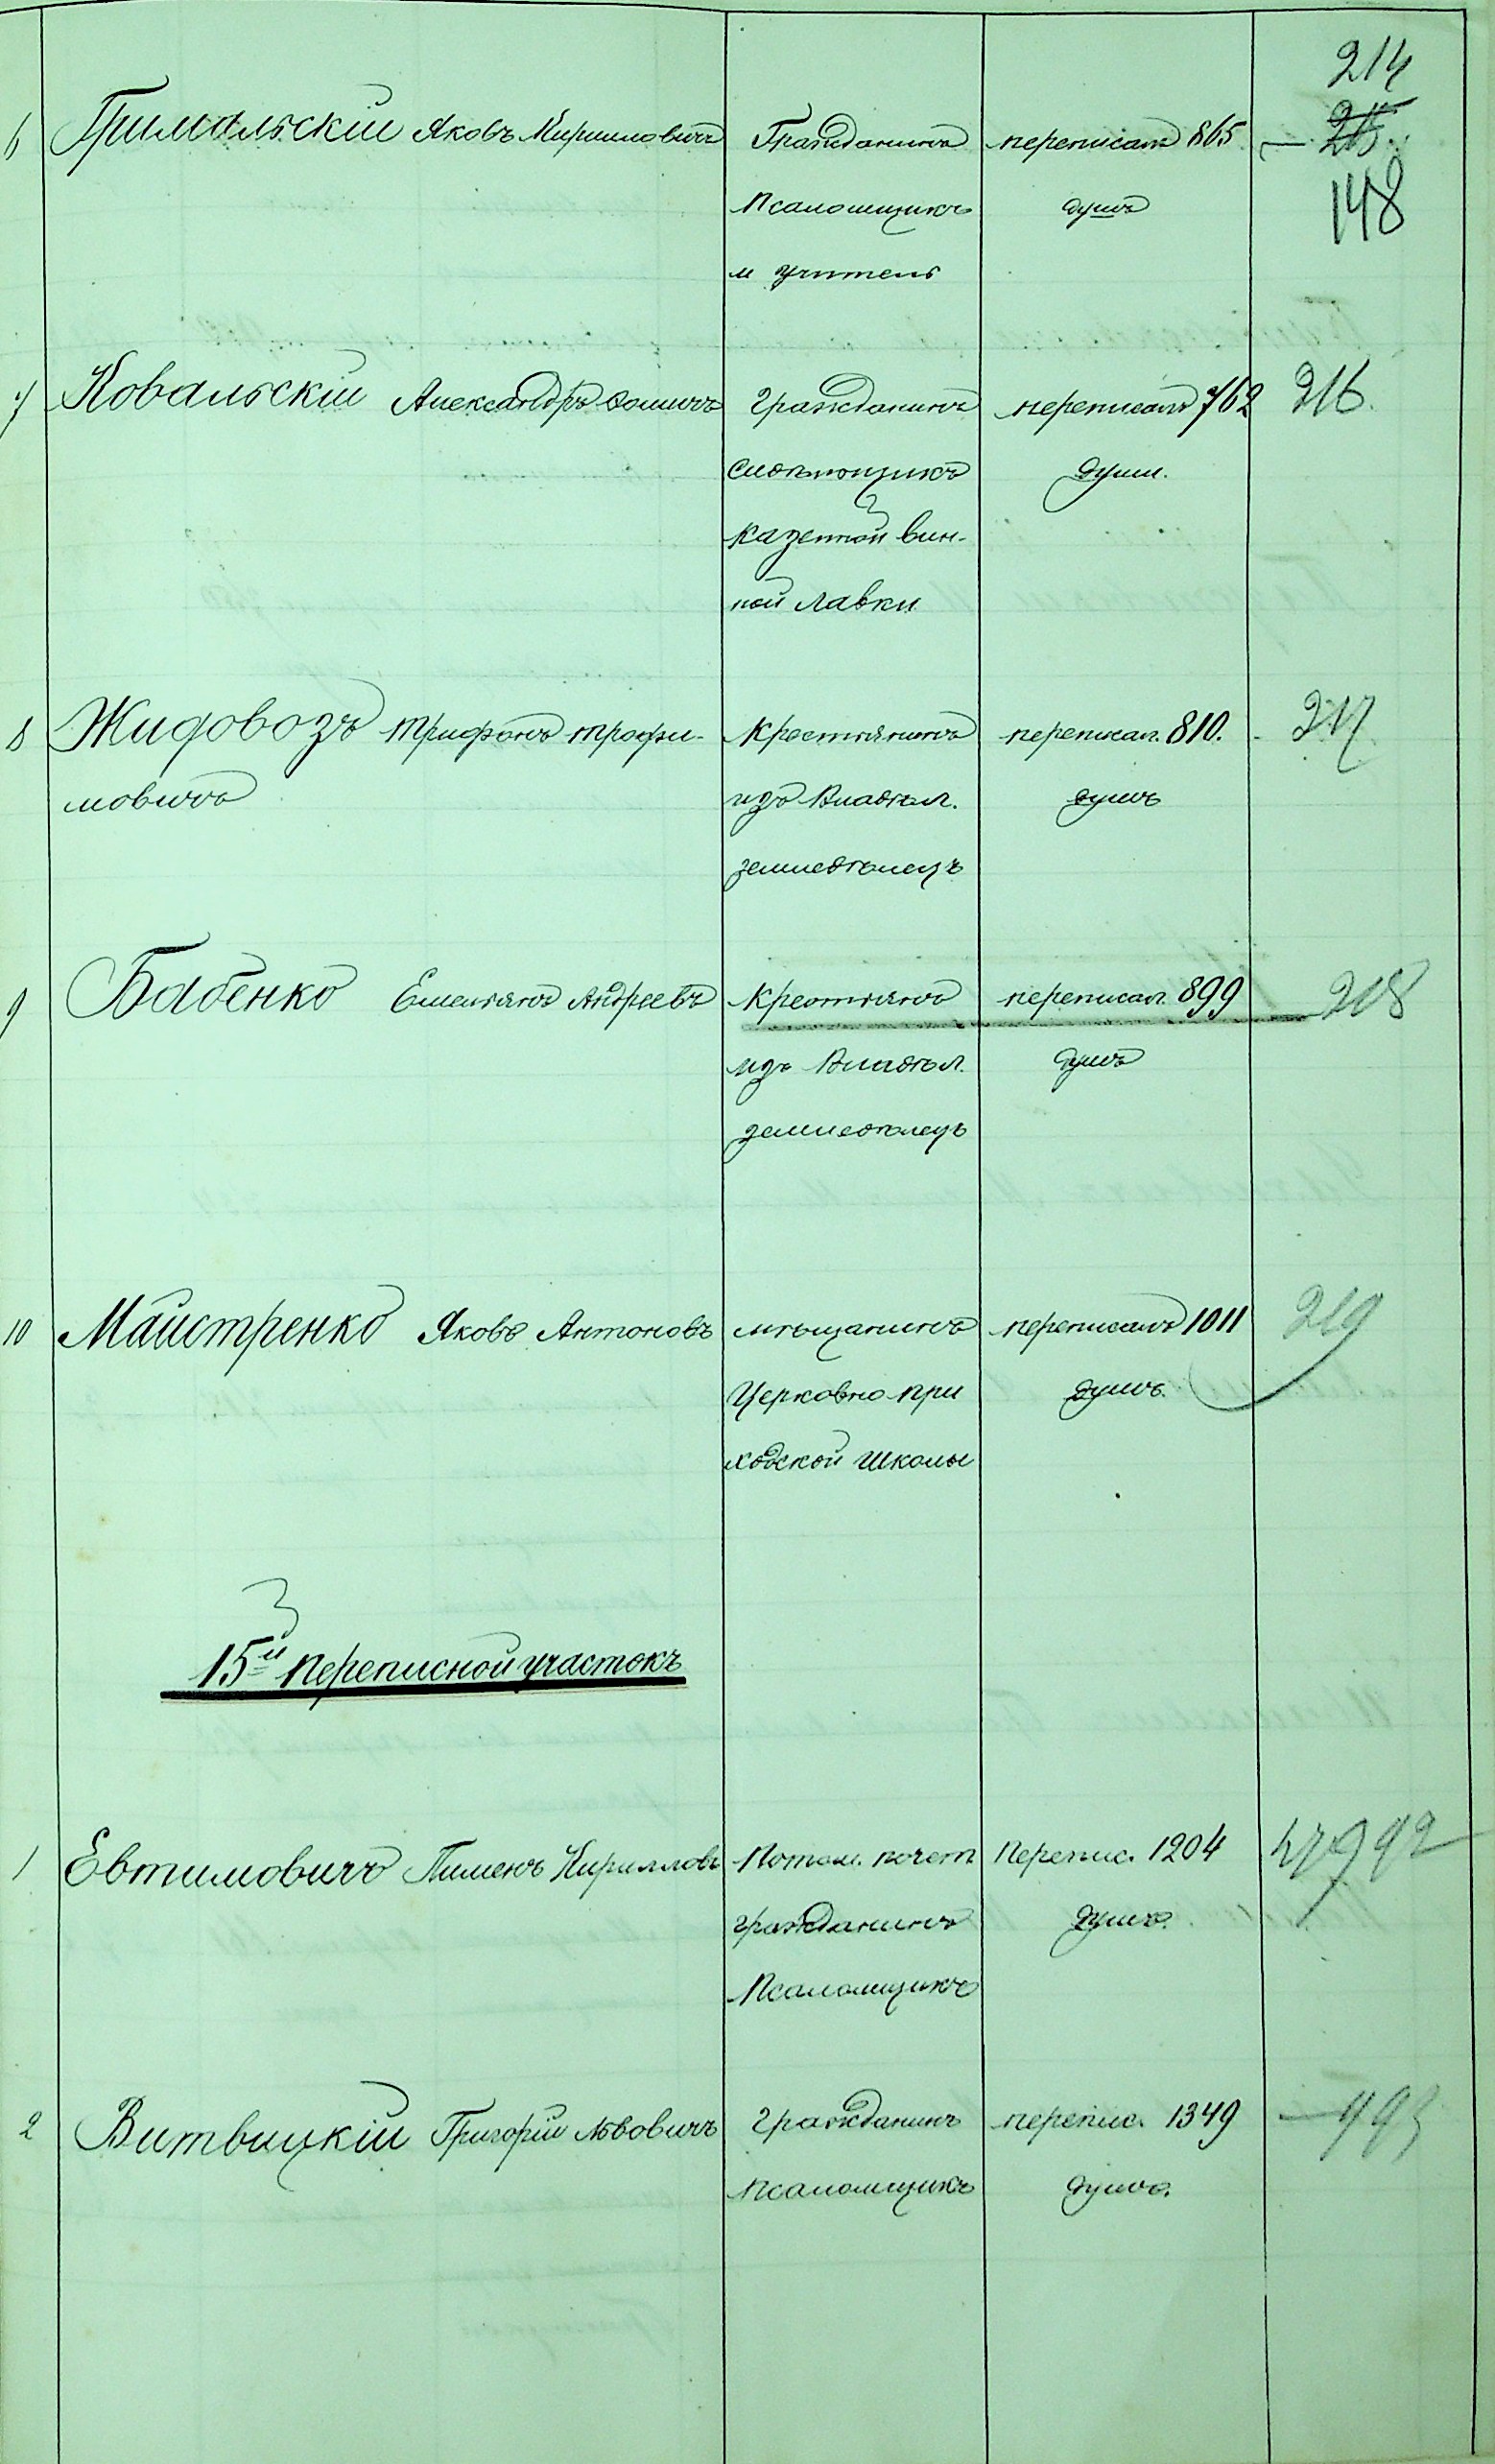 214
6 Гримальскій Яковъ Кирилловичъ Гражданинъ переписалъ 865 — 215
Псаломщикъ душъ 148
и учитель
7 Ковальскій Александръ Фомичъ гражданинъ переписалъ 762 216.
Сидѣлецъ души.
казенной вин-
ной лавки
8 Жидовозъ Трифонъ Трофи- Крестьянинъ переписал. 810. 217
мовичъ изъ Владѣл. душъ
земледѣлецъ
9 Бабенко Емельянъ Андреевъ Крестьянинъ переписал. 899 218
изъ Владѣл. душъ
земледѣлецъ
10 Майстренко Яковъ Антоновъ мѣщанинъ переписалъ 1011 219
Церковно при душъ.
ходской школы
15й переписной участокъ
1 Евтимовичъ Пименъ Кирилловъ Потом. почетн Перепис. 1204 492
гражданинъ душъ.
Псаломщикъ
2 Витвицкій Григорій Львовичъ гражданинъ перепис. 1349 — 493
псаломщикъ душъ.